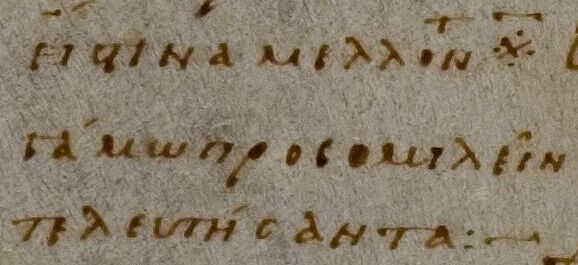 εἰς τινα μελλοντ ※
γάμω προσομιλεῖν
τελευτήσαντα:—